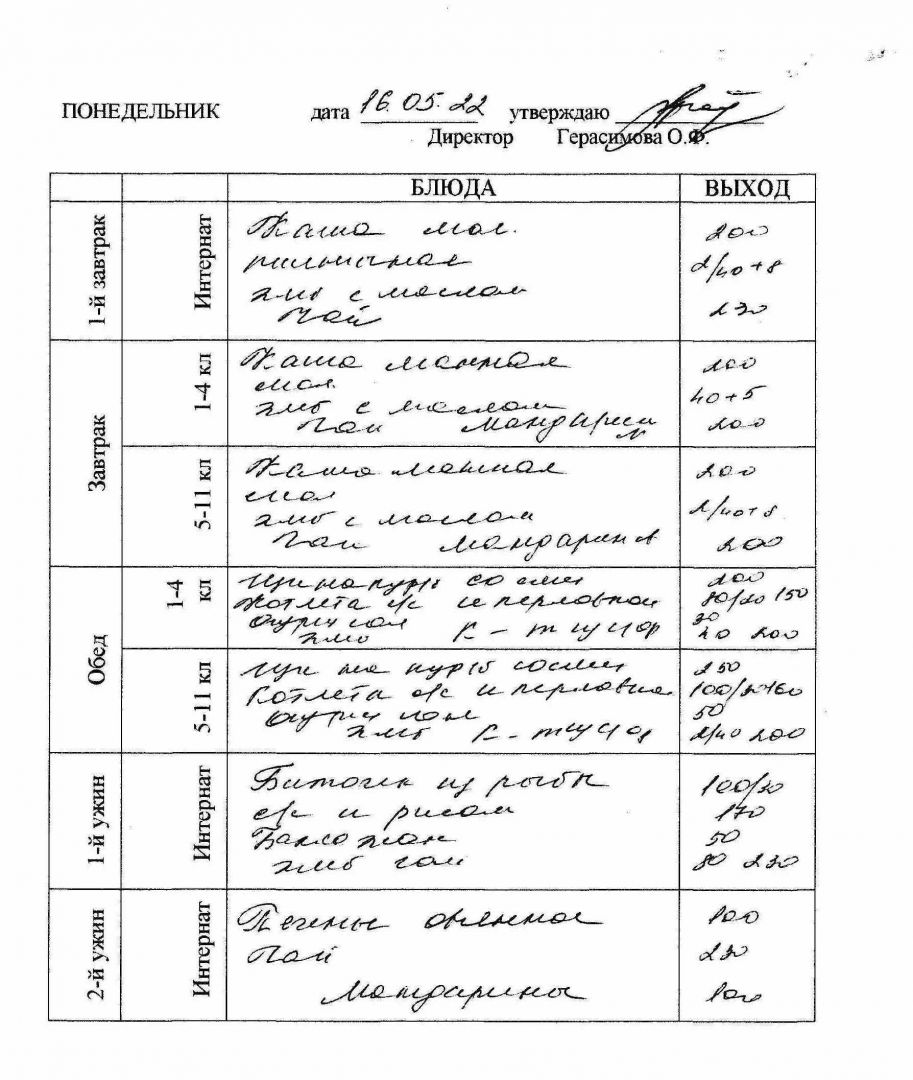 ПОНЕДЕЛЬНИК дата 16.05.22 утверждаю
Директор Герасимова О.Ф.
БЛЮДА ВЫХОД
1-й завтрак Интернат
Каша мол. 200
пшеничная 2/40+8
хлеб с маслом
Чай 230
Завтрак
1-4 кл
Каша манная 200
мол. 40+5
хлеб с маслом
Чай Мандарин 200
5-11 кл
Каша манная 200
мол
хлеб с маслом 2/40+8
Чай Мандарин 200
Обед
1-4 кл
Щи на курб со смет 200
Котлета с/с и перловкой 80/20 150
огурец сол 30
хлеб К-т 20 200
5-11 кл
Щи на курб со смет 250
Котлета с/с и перловка
огурец 50
хлеб К-т 2/40 200
1-й ужин Интернат
Биточек из рыбы 100/30
с/с и рисом 170
Баклажан 50
хлеб чай 80 230
2-й ужин Интернат
Печенье овсянное 100
Чай 230
Мандарины 100